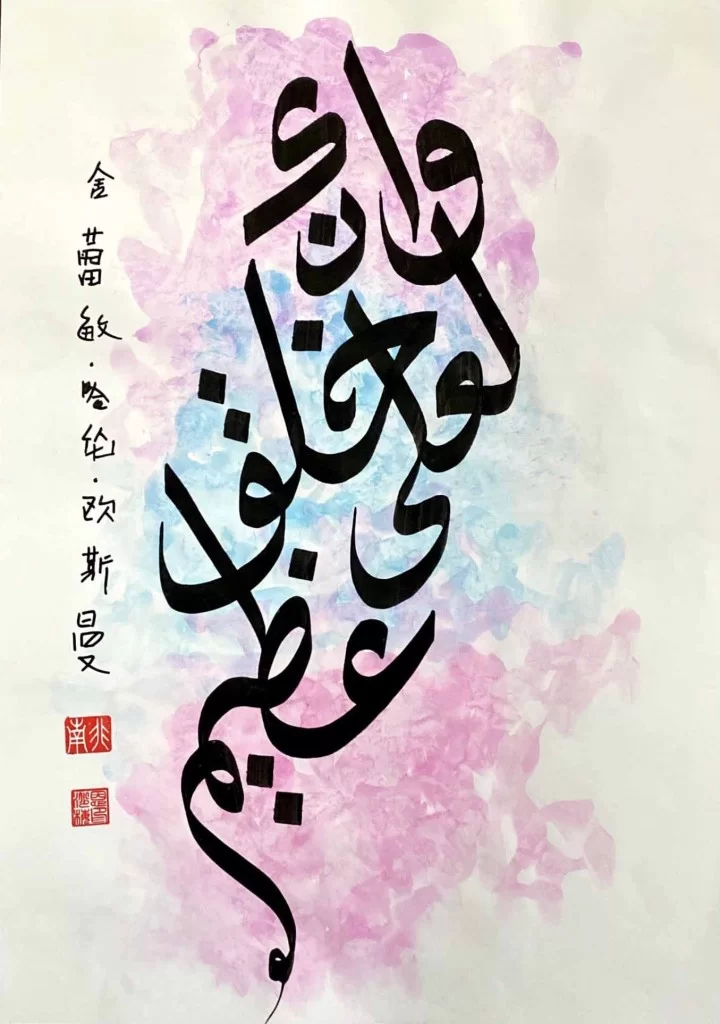 وانك
لعلى خلق
عظيم
舍蕾敏·哈伦·欧斯曼
南非